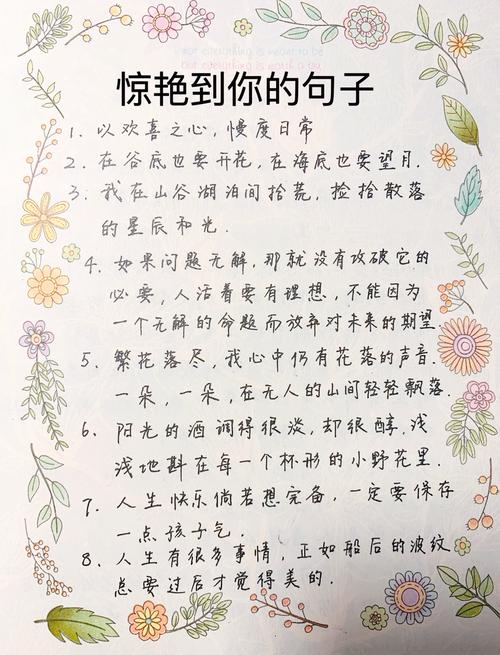 not everything is meant to be
but everything is worth a try
惊艳到你的句子
1. 以欢喜之心，慢度日常
2. 在谷底也要开花，在海底也要望月.
3. 我在山谷湖泊间拾荒，捡拾散落
的星辰和光.
4. 如果问题无解，那就没有攻破它的
必要，人活着要有理想，不能因为
一个无解的命题而放弃对未来的期望
5. 繁花落尽，我心中仍有花落的声音.
一朵，一朵，在无人的山间轻轻飘落.
6. 阳光的酒调得很淡，却很醇.浅
浅地斟在每一个杯形的小野花里.
7. 人生快乐倘若想完备，一定要保存
一点孩子气.
8. 人生有很多事情，正如船后的波纹
总要过后才觉得美的.